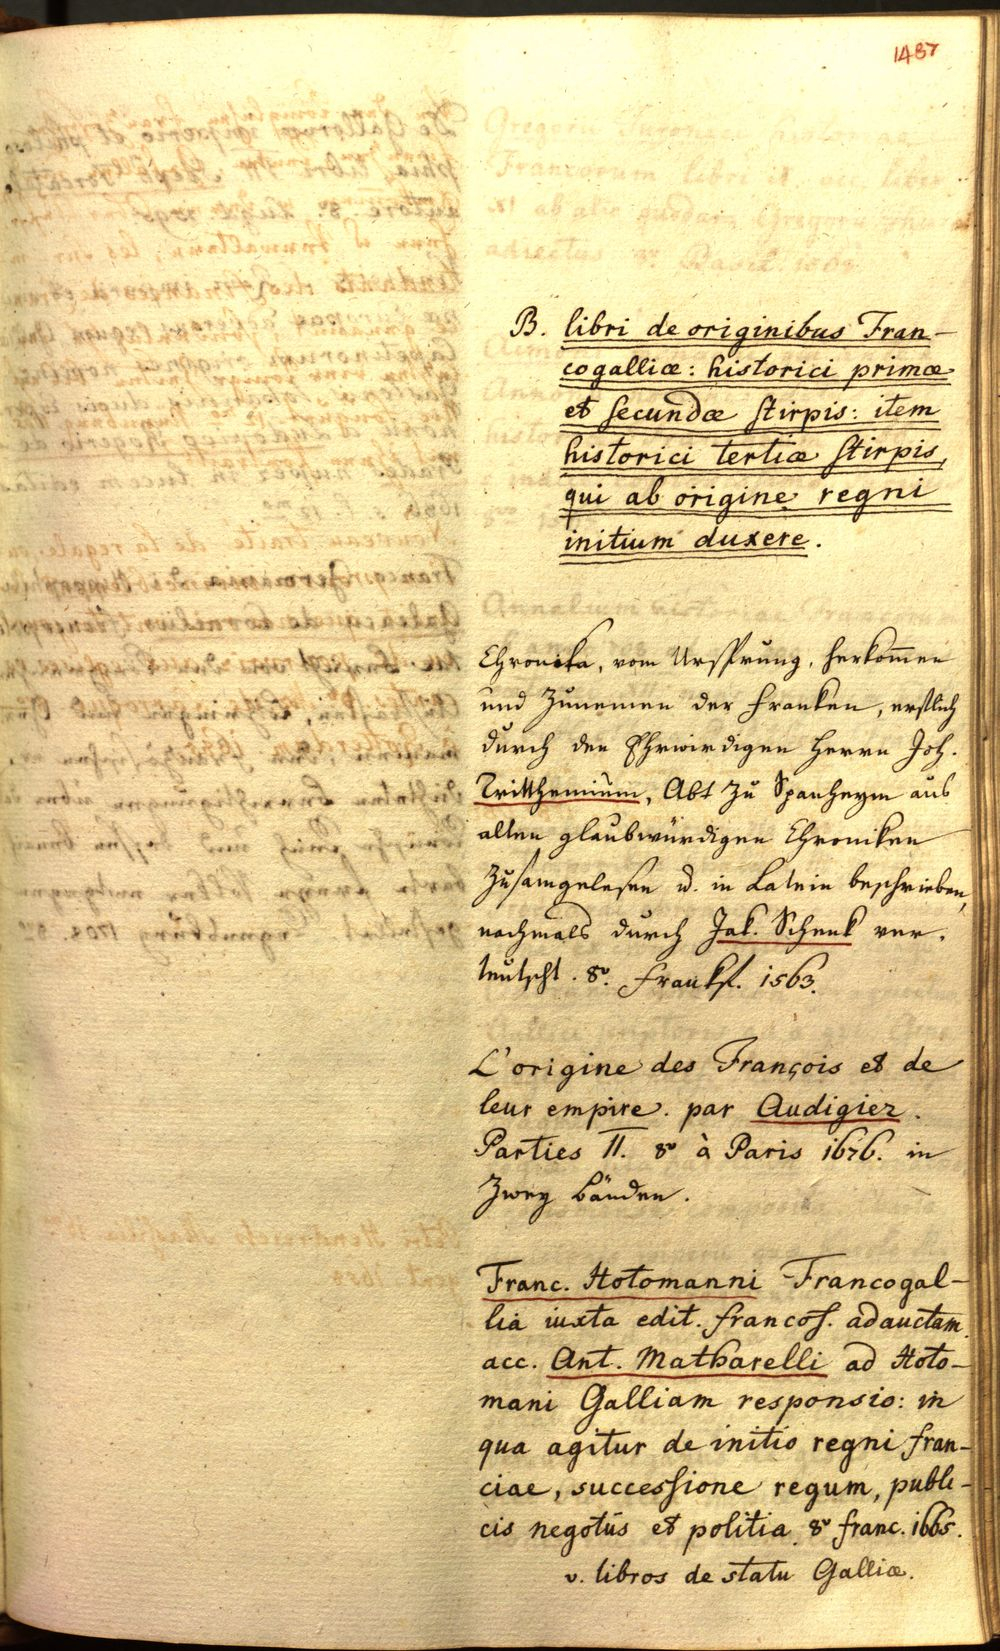 1487
B. libri de originibus Fran-
cogalliæ: historici primæ
et secundæ stirpis: item
historici tertiæ stirpis,
qui ab origine regni
initium duxere.
Chronika, vom Ursprung, herkom̄en
und Zunemen der Franken, erstlich
durch den Ehrwirdigen Herrn Joh.
Tritthemium, Abt zu Spanheym aus
alten glaubwürdigen Chroniken
zusamgelesen u. in Latein beschrieben,
nachmals durch Jak. Schenk ver-
teutscht. 8º. Frankf. 1563.
L'origine des François et de
leur empire. par Audigier.
Parties II. 8º à Paris 1676. in
Zwey Bänden.
Franc. Hotomanni Francogal-
lia iuxta edit. francof. adauctam.
acc. Ant. Matharelli ad Hoto-
mani Galliam responsio: in
qua agitur de initio regni fran-
ciae, successione regum, publi-
cis negotiis et politia 8º franc. 1665.
v. libros de statu Galliæ.